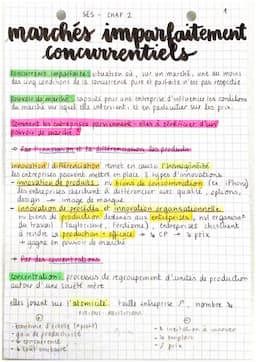 SES - CHAP 2
1
marchés imparfaitement
concurrentiels
concurrence imparfaite: situation où, sur un marché, une au moins
des cinq conditions de la concurrence pure et parfaite n'est pas respectée
pouvoir de marché: capacité pour une entreprise d'influencer les conditions
du marché sur lequel elle intervient et en particulier sur les prix.
Comment les entreprises parviennent-elles à bénéficier d'un
pouvoir de marché ?
→ Par l'innovation et la différenciation des produits
innovation / différenciation remet en cause l'homogénéité
les entreprises peuvent mettre en place 2 types d'innovations.
- innovation de produits: biens de consommation (ex iPhone)
les entreprises cherchent à différencier avec qualité, options,
design → image de marque
- innovation de procédés et innovation organisationnelle
biens de production destinés aux entreprises, organisa°
du travail (taylorisme, fordisme), entreprises cherchent
à rendre la production + efficace → ↓ CP → ↓ prix
→ gagne en pouvoir de marché
→ Par des concentrations
concentration: processus de regroupement d'unités de production
autour d'une société mère
elles jouent sur l'atomicité, taille entreprise ↗, nombre ↘
- économie d'échelle
- gain de productivité
- concurrence
- coût unitaire